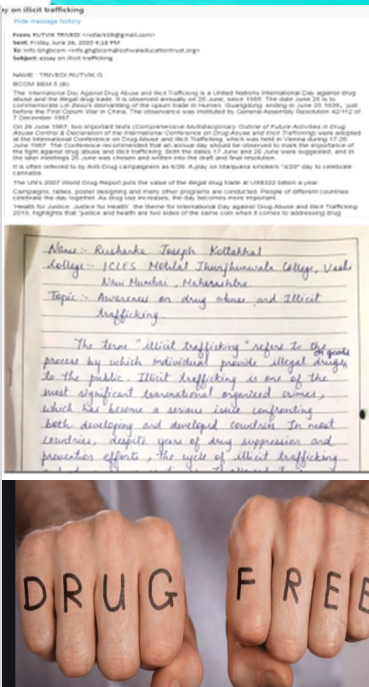 ay on illicit trafficking
Hide message history
From: RUTVIK TRIVEDI
Sent: Friday, June 26, 2020 4:19 PM
Subject: essay on illicit trafficking
NAME : TRIVEDI RUTVIK G
BCOM SEM 5 (B)
The International Day Against Drug Abuse and Illicit Trafficking is a United Nations International Day against drug
abuse and the illegal drug trade. It is observed annually on 26 June, since 1989. The date June 26 is to
commemorate Lin Zexu's dismantling of the opium trade in Humen, Guangdong, ending in June 25 1839, just
before the First Opium War in China. The observance was instituted by General Assembly Resolution 42/112 of
7 December 1987.
On 26 June 1987, two important texts (Comprehensive Multidisciplinary Outline of Future Activities in Drug
Abuse Control & Declaration of the International Conference on Drug Abuse and Illicit Trafficking) were adopted
at the International Conference on Drug Abuse and Illicit Trafficking, which was held in Vienna during 17-26
June 1987. The Conference recommended that an annual day should be observed to mark the importance of
the fight against drug abuse and illicit trafficking. Both the dates 17 June and 26 June were suggested, and in
the later meetings 26 June was chosen and written into the draft and final resolution.
It is often referred to by Anti-Drug campaigners as 6/26. A play on Marijuana smokers "4/20" day to celebrate
cannabis.
The UN's 2007 World Drug Report puts the value of the illegal drug trade at US$322 billion a year.
Campaigns, rallies, poster designing and many other programs are conducted. People of different countries
celebrate the day together. As drug use increases, the day becomes more important.
'Health for Justice. Justice for Health', the theme for International Day against Drug Abuse and Illicit Trafficking
2019, highlights that "justice and health are two sides of the same coin when it comes to addressing drug
Name :- Rushanka Joseph Kottakkal
College :- ICLES Motilal Jhunjhunwala College, Vashi
Navi Mumbai, Maharashtra
Topic :- Awareness on drug abuse and Illicit
trafficking.
The term "illicit trafficking" refers to the
process by which individual provide illegal drugs or goods
to the public. Illicit trafficking is one of the
most significant transnational organized crimes,
which has become a serious issue confronting
both developing and developed countries. In most
countries, despite years of drug suppression and
prevention efforts, the cycle of illicit trafficking
DRUG FREE